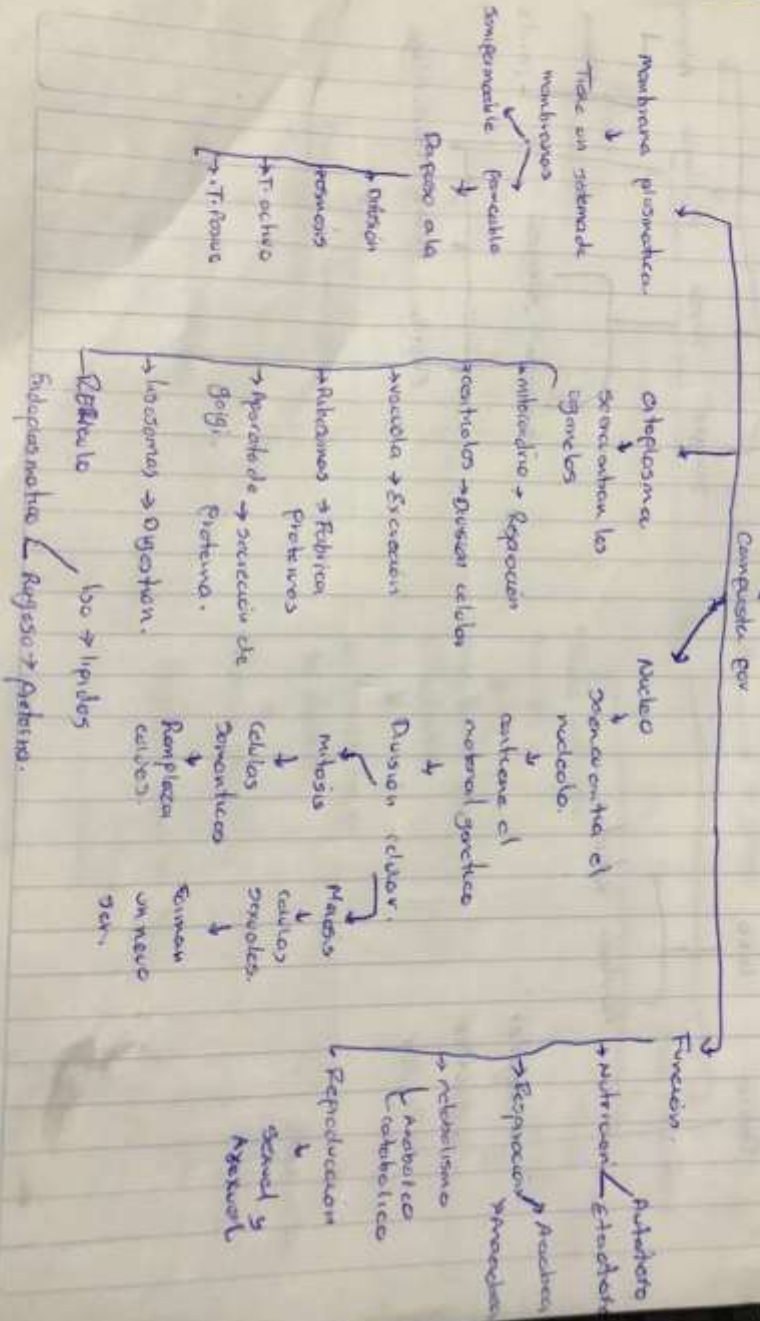 Compuesta por
Membrana plasmatica
Tiene un sistema de
membranas
semipermeable permeable
Da paso a la
→ Difusión
→ osmosis
→ T. activo
→ T. Pasivo
citoplasma
se encontran los
organelos
→ mitocondria → Respiración
→ centriolos → División celular
→ vacuola → Excreción
→ Ribosomas → Fabrica
proteinas
→ Aparato de → secreción de
golgi. proteina.
→ lisosomas → Digestion.
Reticulo
Endoplasmatico
liso → lipidos
Rugoso → Proteina.
Nucleo
se encuentra el
nucleolo.
contiene el
material genetico
Division celular.
mitosis
celulas
somanticas
Remplaza
Meiosis
celulas
sexuales.
Forman
un nevo
ser.
Función.
→ Nutrición
Autotero
→ Respiracion
→ Aerobica
→ Anaerobica
→ metabolismo
Anabolico
catabolico
→ Reproducción
sexual y
Asexual